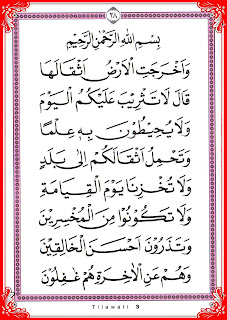 ٢٨
بِسْمِ اللهِ الرَّحْمٰنِ الرَّحِيْمِ
وَاَخْرَجَتِ الْاَرْضُ اَثْقَالَهَا
قَالَ لَا تَثْرِيْبَ عَلَيْكُمُ الْيَوْمَ
وَلَا يُحِيْطُوْنَ بِهٖ عِلْمًا
وَتَحْمِلُ اَثْقَالَكُمْ اِلٰى بَلَدٍ
وَلَا تُخْزِنَا يَوْمَ الْقِيَامَةِ
وَلَا تَكُوْنُوْا مِنَ الْمُخْسِرِيْنَ
وَتَذَرُوْنَ اَحْسَنَ الْخَالِقِيْنَ
وَهُمْ عَنِ الْاٰخِرَةِ هُمْ غٰفِلُوْنَ
Tilawati 3